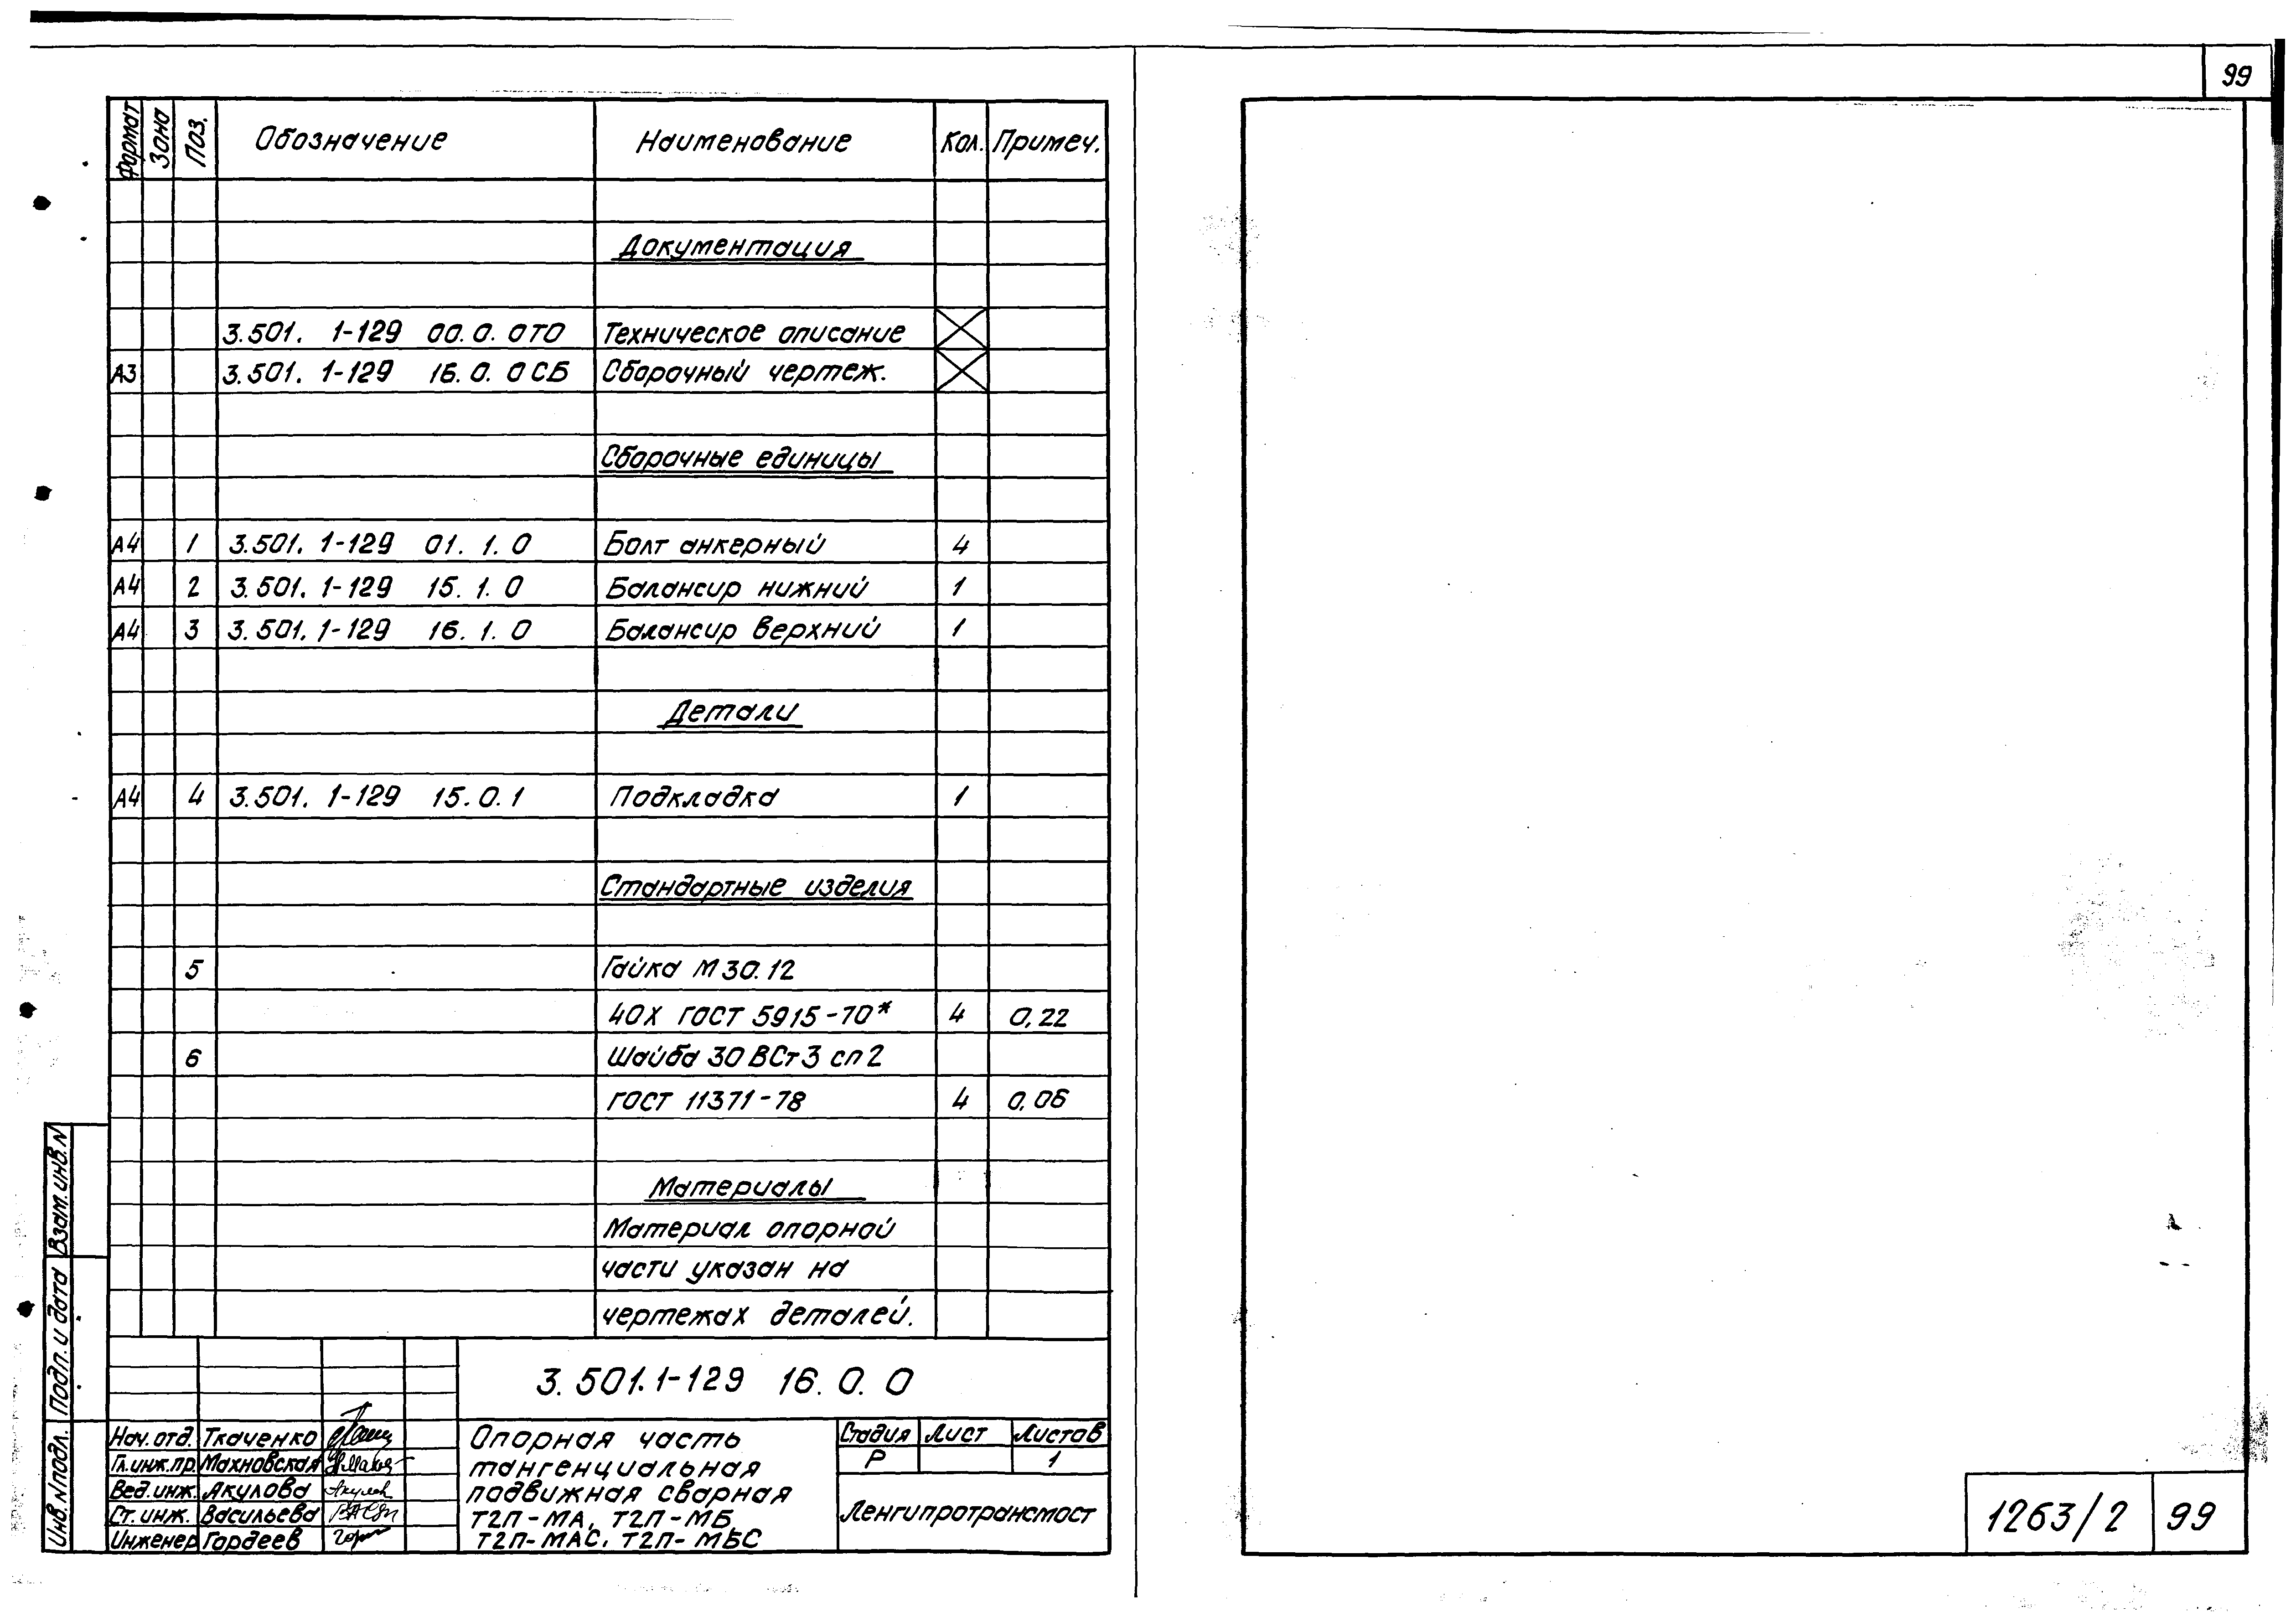 99
Формат Зона Поз. Обозначение Наименование Кол. Примеч.
Документация
3.501. 1-129 00.0.0ТО Техническое описание
А3 3.501. 1-129 16.0.0СБ Сборочный чертеж.
Сборочные единицы
А4 1 3.501. 1-129 01.1.0 Болт анкерный 4
А4 2 3.501. 1-129 15.1.0 Балансир нижний 1
А4 3 3.501. 1-129 16.1.0 Балансир верхний 1
Детали
А4 4 3.501. 1-129 15.0.1 Подкладка 1
Стандартные изделия
5 Гайка М30.12
40Х ГОСТ 5915-70* 4 0,22
6 Шайба 30 ВСт3 сп2
ГОСТ 11371-78 4 0,06
Материалы
Материал опорной
части указан на
чертежах деталей.
Взам.инв.N
Подп. и дата
Инв.Nподл.
3.501.1-129 16.0.0
Нач.отд. Ткаченко
Гл.инж.пр. Махновская
Вед.инж. Акулова
Ст.инж. Васильева
Инженер Гордеев
Опорная часть
тангенциальная
подвижная сварная
Т2П-МА, Т2П-МБ,
Т2П-МАС, Т2П-МБС
Стадия Лист Листов
Р 1
Ленгипротрансмост
1263/2 99